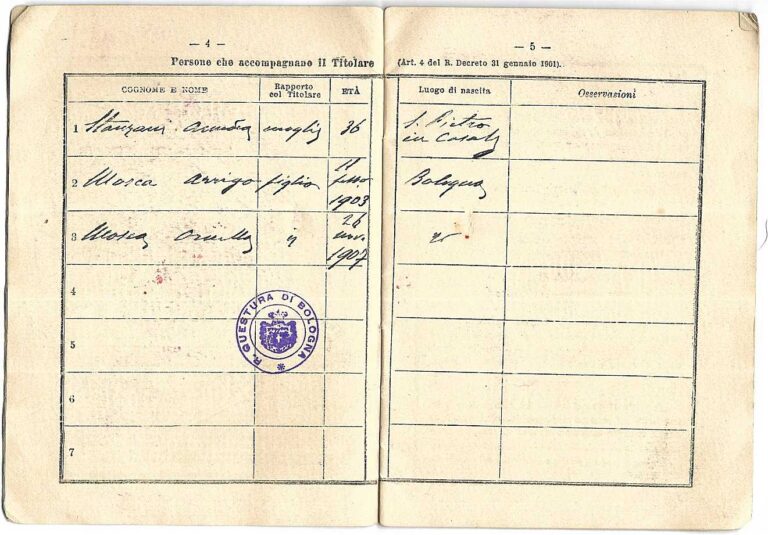 — 4 —
Persone che accompagnano il Titolare
COGNOME E NOME
Rapporto col Titolare
ETÀ
1 Stanzani moglie 36
2 Mosca Arrigo figlio 11 febb. 1903
3 Mosca Ornella " 26 nov. 1907
4
5
6
7
R. QUESTURA DI BOLOGNA
— 5 —
(Art. 4 del R. Decreto 31 gennaio 1901).
Luogo di nascita
Osservazioni
S. Pietro
in Casale
Bologna